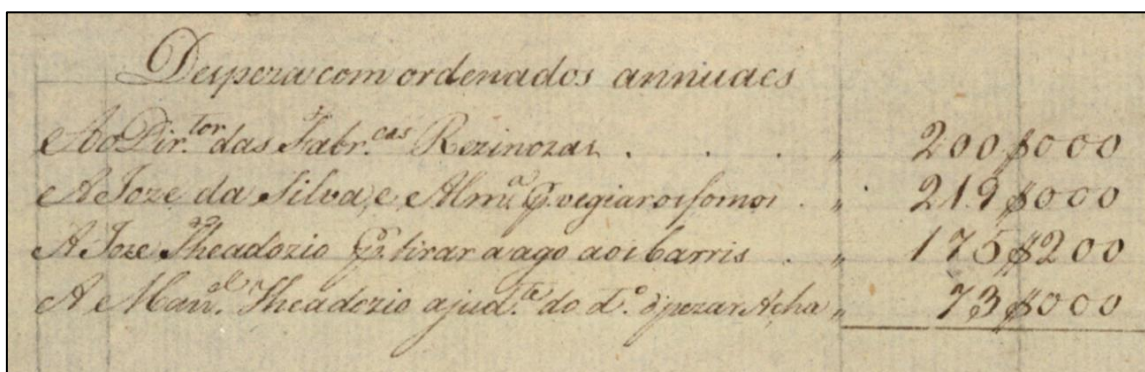 Despeza com ordenados annuaes
Ao Dir.tor das Fabr.cas Rezinozas . . . " 200$000
A Joze da Silva, e Alm.da p.a vegiar os fornos . " 219$000
A Joze Theadozio p.a tirar a ago aos barris . " 175$200
A Man.el Theadozio ajud.te do d.o pezar Acha " 73$000